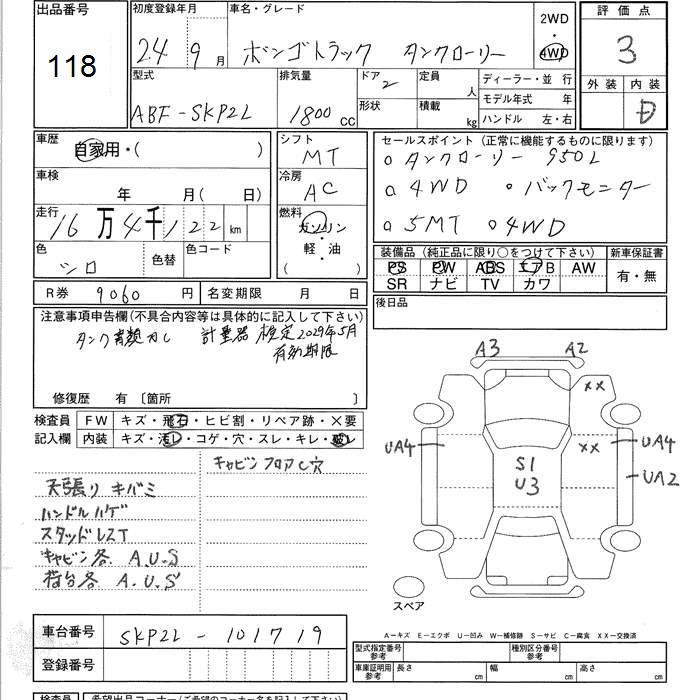 出品番号
118
初度登録年月
24 9月
車名・グレード
ボンゴトラック タンクローリー
2WD
4WD
評価点
3
外装 内装
D
型式
ABF-SKP2L
排気量
1800 cc
ドア
2
形状
定員
人
積載
kg
ディーラー・並行
モデル年式 年
ハンドル 左・右
車歴
自家用・( )
シフト
MT
セールスポイント (正常に機能するものに限ります)
○タンクローリー 950L
○4WD ○バックモニター
○5MT ○4WD
車検
年 月( 日)
冷房
AC
走行
16万4千122km
燃料
ガソリン
軽・油
( )
色
シロ
色替
色コード
装備品 (純正品に限り○をつけて下さい)
PS PW ABS エアB AW
SR ナビ TV カワ
新車保証書
有・無
R券 9060円
名変期限 月 日
後日品
注意事項申告欄(不具合内容等は具体的に記入して下さい)
計量器 検定2029年5月
有効期限
修復歴 有 [箇所 ]
検査員
記入欄
FW キズ・飛石・ヒビ割・リペア跡・×要
内装 キズ・汚レ・コゲ・穴・スレ・キレ・破レ
キャビンフロアC穴
天張りキバミ
ハンドルハゲ
スタッドレスT
キャビン各 A.U.S
荷台各 A.U.S
A3 A2
××
UA4 ×× UA4
UA2
S1
U3
スペア
A-キズ E-エクボ U-凹み W-補修跡 S-サビ C-腐食 XX-交換済
車台番号 SKP2L-101719
登録番号
型式指定番号
参考
種別区分番号
参考
車庫証明用
参考
長さ cm 幅 cm 高さ cm
検査員 希望出品コーナー(ご希望のコーナー名を記入して下さい)